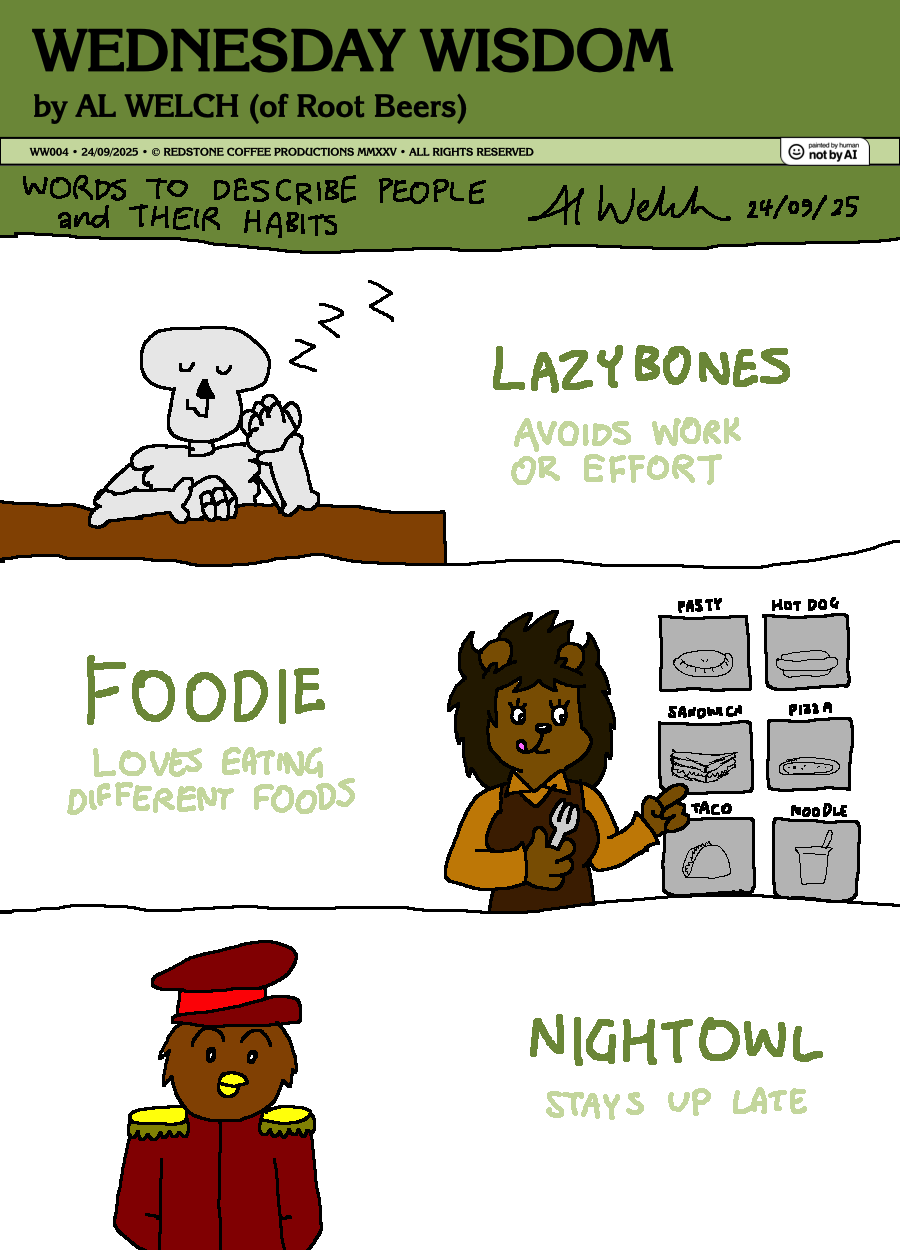 WEDNESDAY WISDOM
by AL WELCH (of Root Beers)
WW004 • 24/09/2025 • © REDSTONE COFFEE PRODUCTIONS MMXXV • ALL RIGHTS RESERVED
painted by human
not by AI
WORDS TO DESCRIBE PEOPLE
and THEIR HABITS
Al Welch 24/09/25
Z
Z
Z
LAZYBONES
AVOIDS WORK
OR EFFORT
FOODIE
LOVES EATING
DIFFERENT FOODS
PASTY HOT DOG
SANDWICH PIZZA
TACO NOODLE
NIGHTOWL
STAYS UP LATE